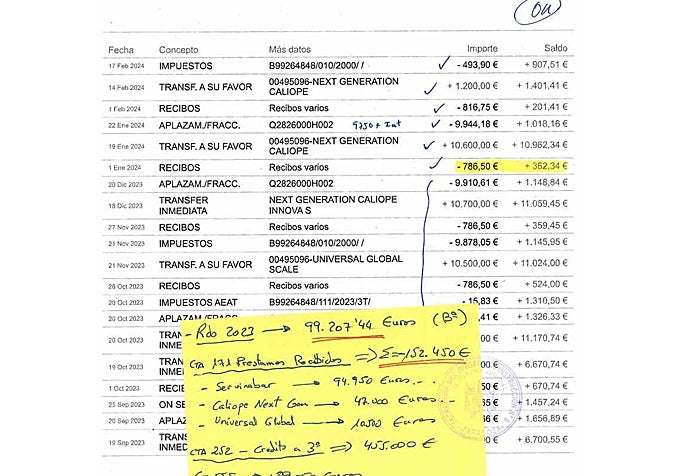 OU
Fecha Concepto Más datos Importe Saldo
17 Feb 2024 IMPUESTOS B99264848/010/2000/ / - 493,90 € + 907,51 €
14 Feb 2024 TRANSF. A SU FAVOR 00495096-NEXT GENERATION CALIOPE + 1.200,00 € + 1.401,41 €
1 Feb 2024 RECIBOS Recibos varios - 816,75 € + 201,41 €
22 Ene 2024 APLAZAM./FRACC. Q2826000H002 9750 + Int - 9.944,18 € + 1.018,16 €
19 Ene 2024 TRANSF. A SU FAVOR 00495096-NEXT GENERATION CALIOPE + 10.600,00 € + 10.962,34 €
1 Ene 2024 RECIBOS Recibos varios - 786,50 € + 362,34 €
20 Dic 2023 APLAZAM./FRACC. Q2826000H002 - 9.910,61 € + 1.148,84 €
18 Dic 2023 TRANSFER INMEDIATA NEXT GENERATION CALIOPE INNOVA S + 10.700,00 € + 11.059,45 €
27 Nov 2023 RECIBOS Recibos varios - 786,50 € + 359,45 €
21 Nov 2023 IMPUESTOS B99264848/010/2000/ / - 9.878,05 € + 1.145,95 €
21 Nov 2023 TRANSF. A SU FAVOR 00495096-UNIVERSAL GLOBAL SCALE + 10.500,00 € + 11.024,00 €
26 Oct 2023 RECIBOS Recibos varios - 786,50 € + 524,00 €
20 Oct 2023 IMPUESTOS AEAT B99264848/111/2023/3T/ - 15,83 € + 1.310,50 €
20 Oct 2023 ,41 € + 1.326,33 €
20 Oct 2023 TRAN INME 00 € + 11.170,74 €
19 Oct 2023 TRAN INME + 6.670,74 €
1 Oct 2023 RECIE 50 € + 670,74 €
25 Sep 2023 ON SE + 1.457,24 €
20 Sep 2023 APLAZ + 1.656,89 €
19 Sep 2023 TRANS INMED 00 € + 6.700,55 €
- Rdo 2023 → 99.207'44 Euros (Bº)
CTA 171 Prestamos Recibidos ⇒ Σ=-152.450 €
- Servinabar → 94.950 Euros..
- Caliope Next Gen → 47.000 Euros..
- Universal Global → 10.500 Euros
CTA 252 - Credito a 3º ⇒ 455.000 €